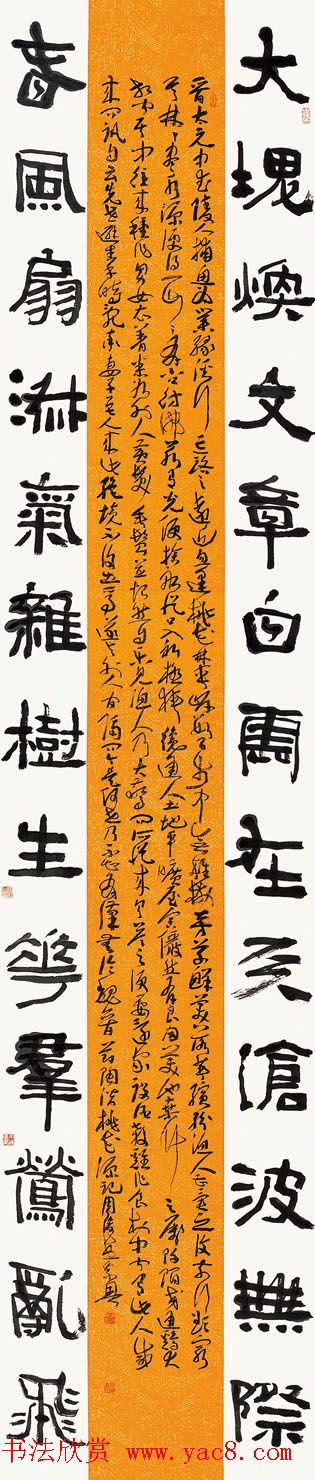 大塊煥文章白雲在天滄波無際
晉太元中武陵人捕魚為業緣溪行忘路之遠近忽逢桃花林夾岸數百步中無雜樹芳草鮮美落英繽紛漁人甚異之復前行欲窮
其林林盡水源便得一山山有小口髣髴若有光便捨船從口入初極狹纔通人土地平曠屋舍儼然有良田美池桑竹之屬阡陌交通雞犬
相聞其中往來種作男女衣著悉如外人黃髮垂髫並怡然自樂見漁人乃大驚問所從來具答之便要還家設酒殺雞作食村中聞有此人咸
來問訊自云先世避秦時亂率妻子邑人來此絕境不復出焉遂與外人間隔問今是何世乃不知有漢無論魏晉
春風扇淑氣雜樹生花羣鶯亂飛
书法欣赏 www.yac8.com